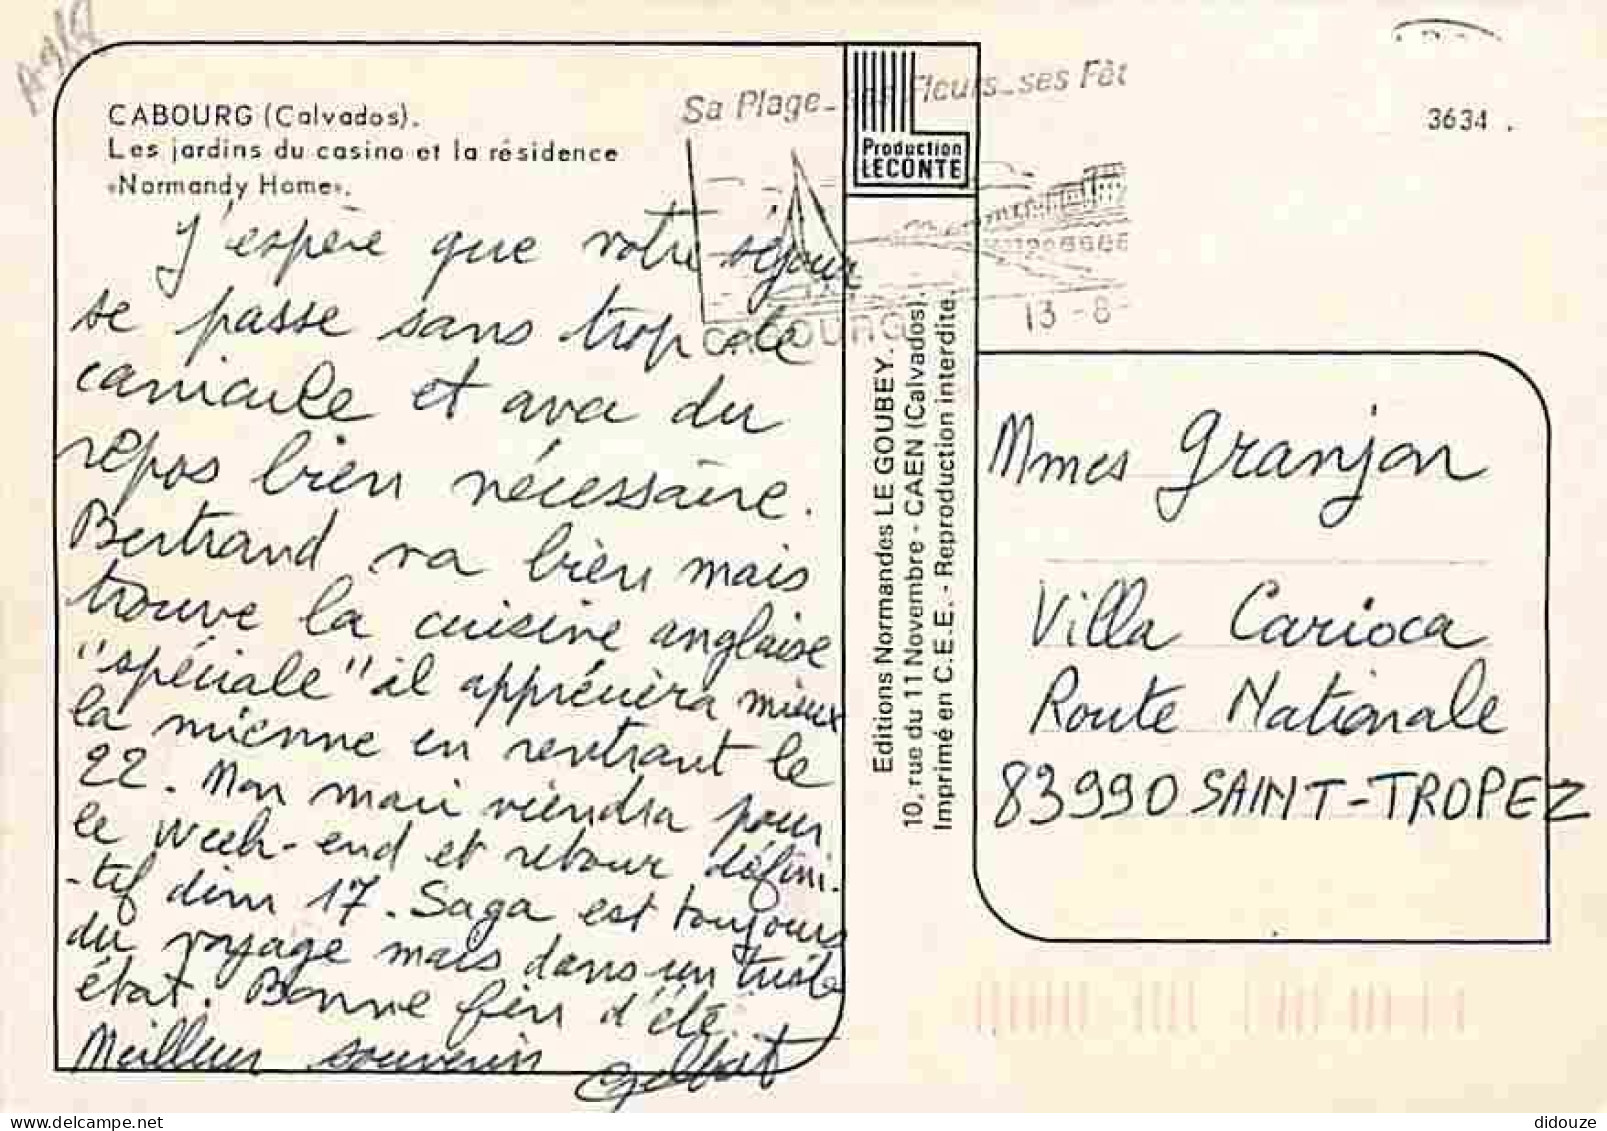 CABOURG (Calvados).
Les jardins du casino et la résidence
«Normandy Home».
J'espère que votre séjour
se passe sans trop de
canicule et avec du
repos bien nécessaire.
Bertrand va bien mais
trouve la cuisine anglaise
"spéciale" il appréciera mieux
la mienne en rentrant le
22. Mon mari viendra pour
le week-end et retour défini-
-tif dim 17. Saga est toujours
du voyage mais dans un triste
état. Bonne fin d'été
Meilleur souvenir
Sa Plage_ses Fleurs_ses Fêt
CABOURG
13-8-
Production
LECONTE
Editions Normandes LE GOUBEY.
10, rue du 11 Novembre - CAEN (Calvados).
Imprimé en C.E.E. - Reproduction interdite.
3634.
Mmes Granjon
Villa Carioca
Route Nationale
83990 SAINT-TROPEZ
didouze